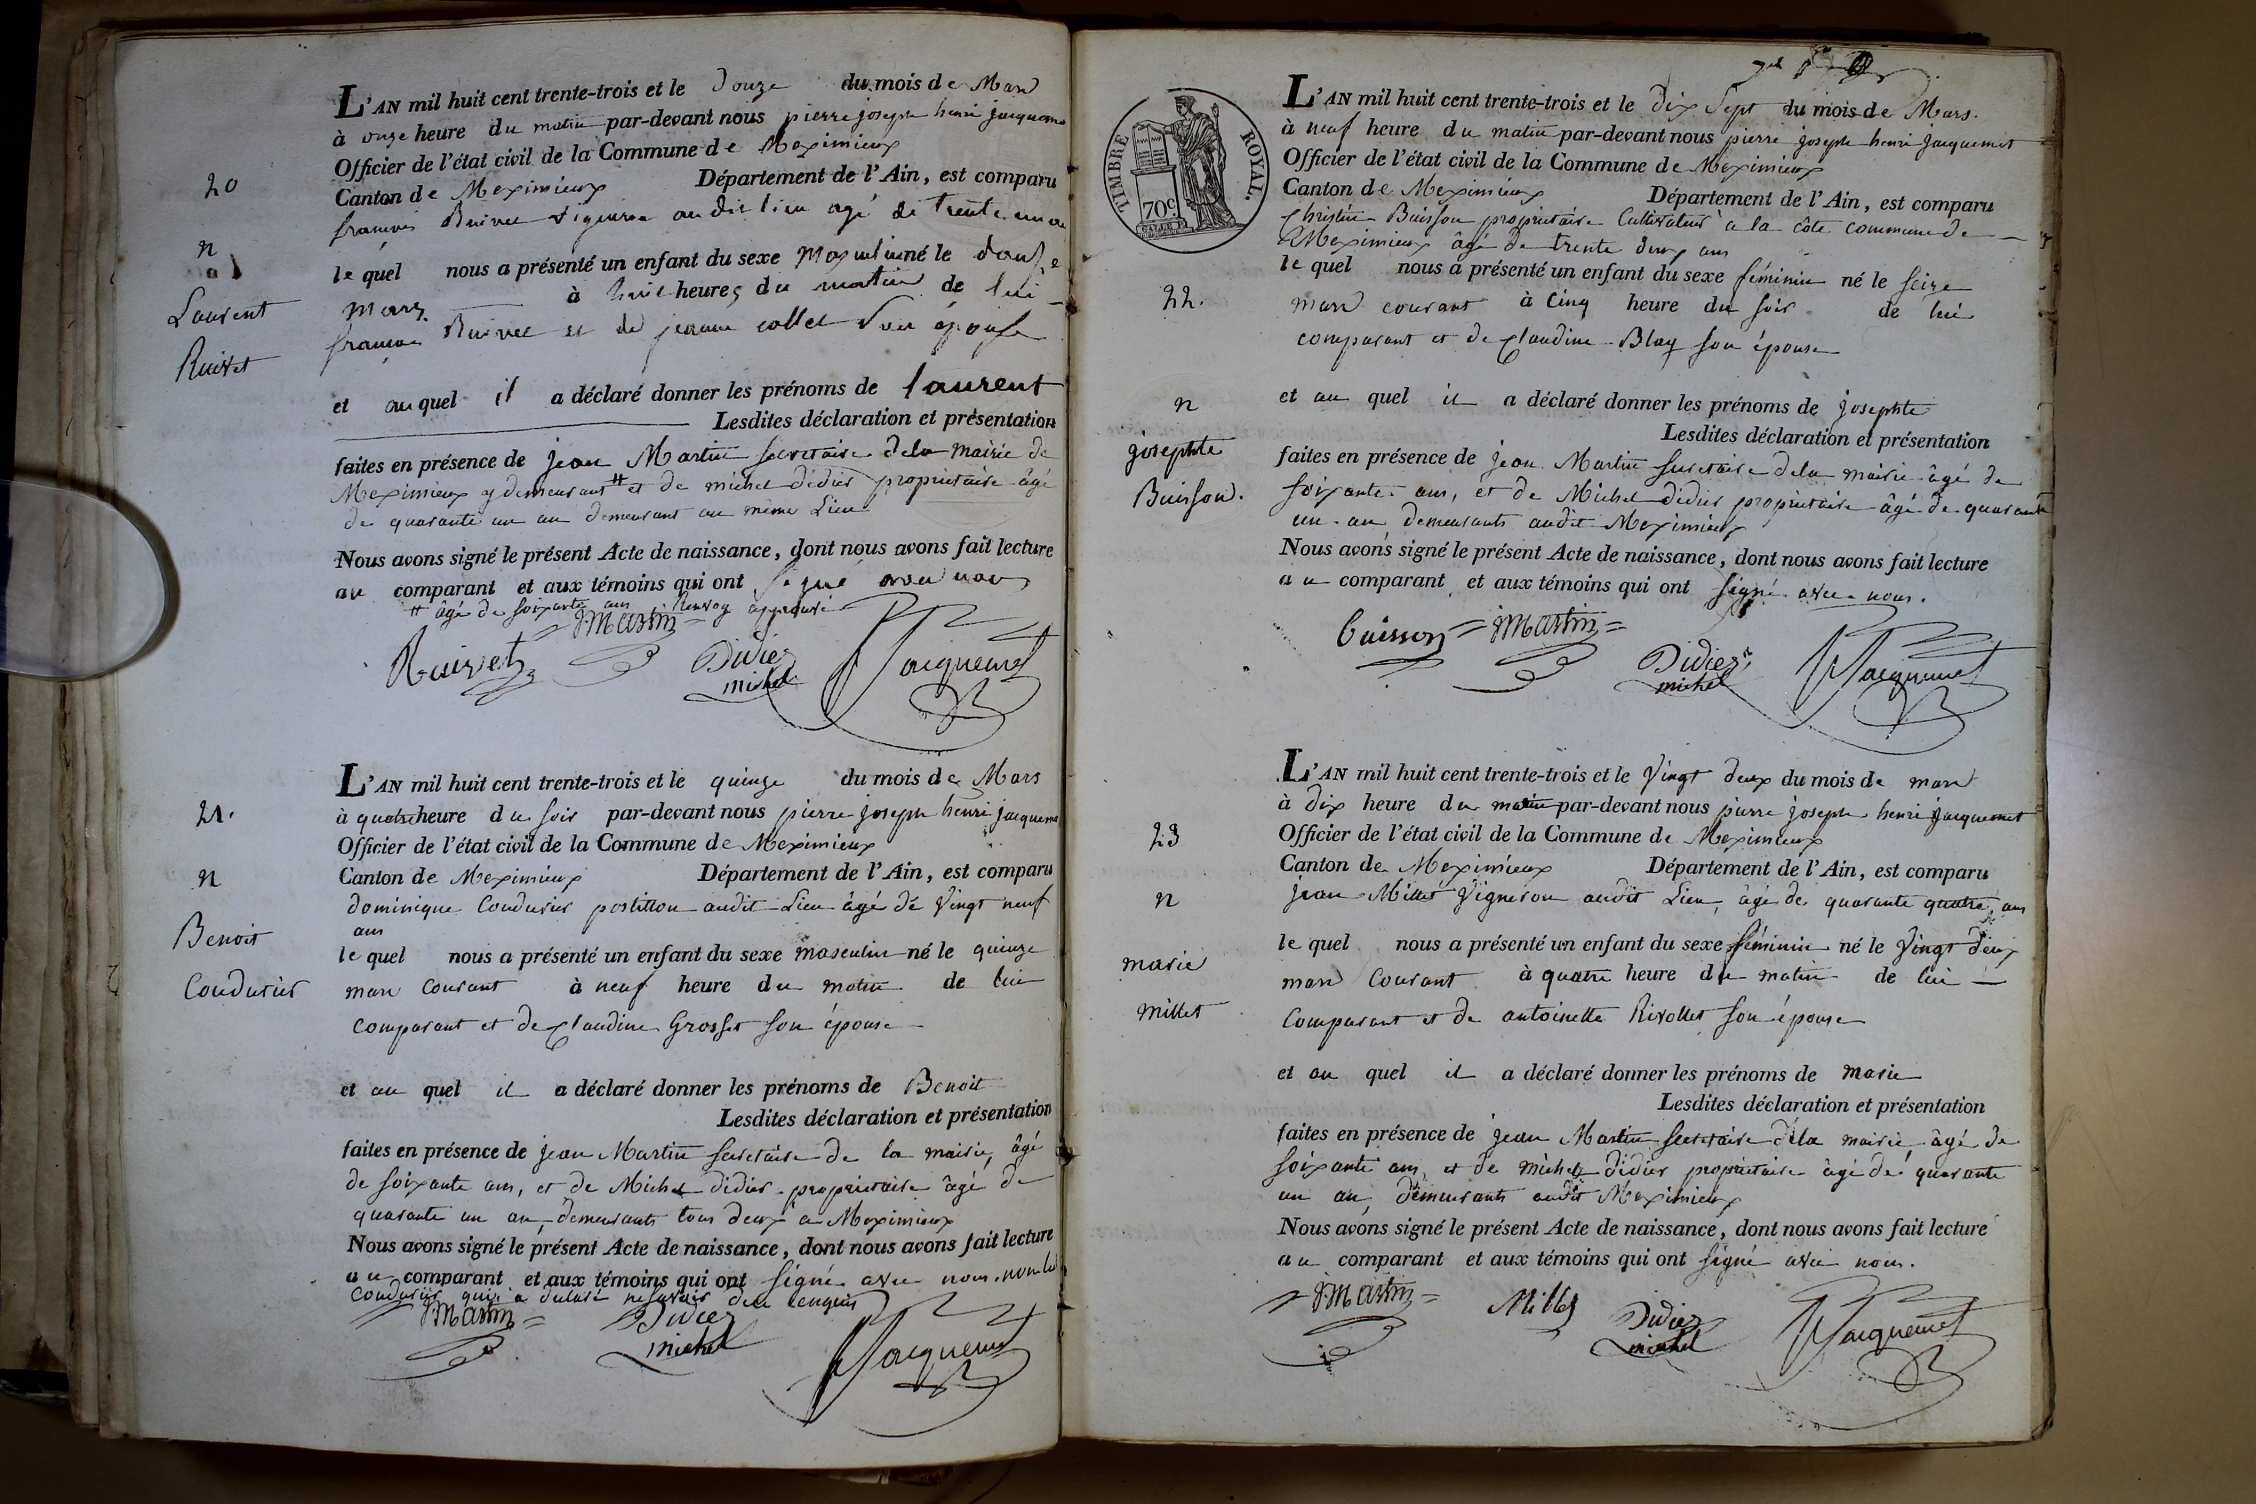 20
n
Laurent
Ruivet
L'AN mil huit cent trente-trois et le Douze du mois de Mars
à onze heure du matin par-devant nous pierre joseph henri jacquemet
Officier de l'état civil de la Commune de Meximieux
Canton de Meximieux Département de l'Ain, est comparu
françois Ruivet vigneron au dit lieu agé de trente un an
le quel nous a présenté un enfant du sexe Masculin né le douze
Mars à huit heures du matin de lui
françois Ruivet et de jeanne collet son épouse
et au quel il a déclaré donner les prénoms de laurent
Lesdites déclaration et présentation
faites en présence de jean Martin secretaire dela mairie de
Meximieux y demeurant # et de michel didier propriétaire âgé
de quarante un an demeurant au même Lieu
Nous avons signé le présent Acte de naissance, dont nous avons fait lecture
au comparant et aux témoins qui ont signé avec nous
# âgé de soixante ans Renvoy approuvé
Ruivet JMartin Didier michel Jacquemet
21.
n
Benoit
Condurier
L'AN mil huit cent trente-trois et le quinze du mois de Mars
à quatre heure du soir par-devant nous pierre joseph henri jacquemet
Officier de l'état civil de la Commune de Meximieux
Canton de Meximieux Département de l'Ain, est comparu
dominique Condurier postillon audit Lieu âgé de Vingt neuf
ans
le quel nous a présenté un enfant du sexe masculin né le quinze
mars courant à neuf heure du matin de lui
comparant et de Claudine Grosset son épouse
et au quel il a déclaré donner les prénoms de Benoit
Lesdites déclaration et présentation
faites en présence de jean Martin secretaire de la mairie, âgé
de soixante ans, et de Michel didier propriétaire âgé de
quarante un an, demeurants tous deux a Meximieux
Nous avons signé le présent Acte de naissance, dont nous avons fait lecture
au comparant et aux témoins qui ont signé avec nous. non le
Condurier qui a déclaré ne savoir de ce enquis
JMartin Didier michel Jacquemet
TIMBRE ROYAL.
70c.
22.
n
josephte
Buisson.
L'AN mil huit cent trente-trois et le dix Sept du mois de Mars.
à neuf heure du matin par-devant nous pierre joseph henri jacquemet
Officier de l'état civil de la Commune de Meximieux
Canton de Meximieux Département de l'Ain, est comparu
Buisson propriétaire Cultivateur a la côte commune de
Meximieux âgé de trente deux ans
le quel nous a présenté un enfant du sexe féminin né le seize
mars courant à Cinq heure du soir de lui
comparant et de Claudine Blay son épouse
et au quel il a déclaré donner les prénoms de josephte
Lesdites déclaration et présentation
faites en présence de jean Martin secretaire dela mairie âgé de
soixante ans, et de Michel didier propriétaire âgé de quarante
un an demeurants audit Meximieux
Nous avons signé le présent Acte de naissance, dont nous avons fait lecture
au comparant et aux témoins qui ont signé avec nous.
buisson JMartin Didier michel Jacquemet
23
n
marie
millet
L'AN mil huit cent trente-trois et le Vingt deux du mois de mars
à dix heure du matin par-devant nous pierre joseph henri jacquemet
Officier de l'état civil de la Commune de Meximieux
Canton de Meximieux Département de l'Ain, est comparu
jean Millet Vigneron audit Lieu, âgé de quarante quatre ans
le quel nous a présenté un enfant du sexe féminin né le Vingt deux
mars Courant à quatre heure du matin de lui
Comparant et de antoinette Rivollet son épouse
et au quel il a déclaré donner les prénoms de marie
Lesdites déclaration et présentation
faites en présence de jean Martin secretaire dela mairie âgé de
soixante ans et de michel didier propriétaire âgé de quarante
un an, demeurants audit Meximieux
Nous avons signé le présent Acte de naissance, dont nous avons fait lecture
au comparant et aux témoins qui ont signé avec nous.
JMartin Millet Didier michel Jacquemet